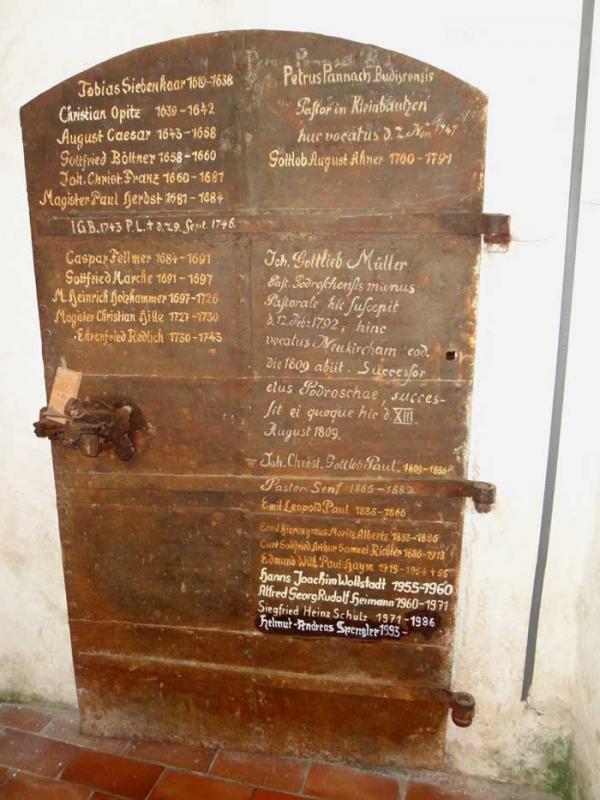 Tobias Siebenhaar 1619-1638
Christian Opitz 1639-1642
August Caesar 1643-1658
Gottfried Böttner 1658-1660
Joh. Christ. Franz 1660-1681
Magister Paul Herbst 1681-1684
I G B. 1743 P. L. † d. 29. Sept. 1746.
Caspar Fellmer 1684-1691
Gottfried Marche 1691-1697
M. Heinrich Holzhammer 1697-1726
Magister Christian Hille 1727-1730
Ehrenfried Redlich 1730-1743
Petrus Pannach Budissensis
Pastor in Kleinbautzen
huc vocatus d. 7. Nov. 1747
Gottlob August Ahner 1760-1791
Joh. Gottlieb Müller
Past. Podroschensis munus
Pastorale hic suscepit
d. 12. Febr. 1792, hinc
vocatus Neukircham eod.
die 1809 abiit. Successor
eius Podroschae, succes-
sit ei quoque hic d. XIII
August 1809.
Joh. Christ. Gottlob Paul. 1809-1836
Pastor Senf 1866-1882
Emil Leopold Paul 1836-1866
Ernst Hieronymus Moritz Albertz 1883-1886
Curt Gottfried Arthur Samuel Richter 1886-1918
Edmund Wilh. Paul Haym 1919-1954
Hanns Joachim Wollstadt 1955-1960
Alfred Georg Rudolf Heimann 1960-1971
Siegfried Heinz Schulz 1971-1986
Helmut-Andreas Spengler 1993-